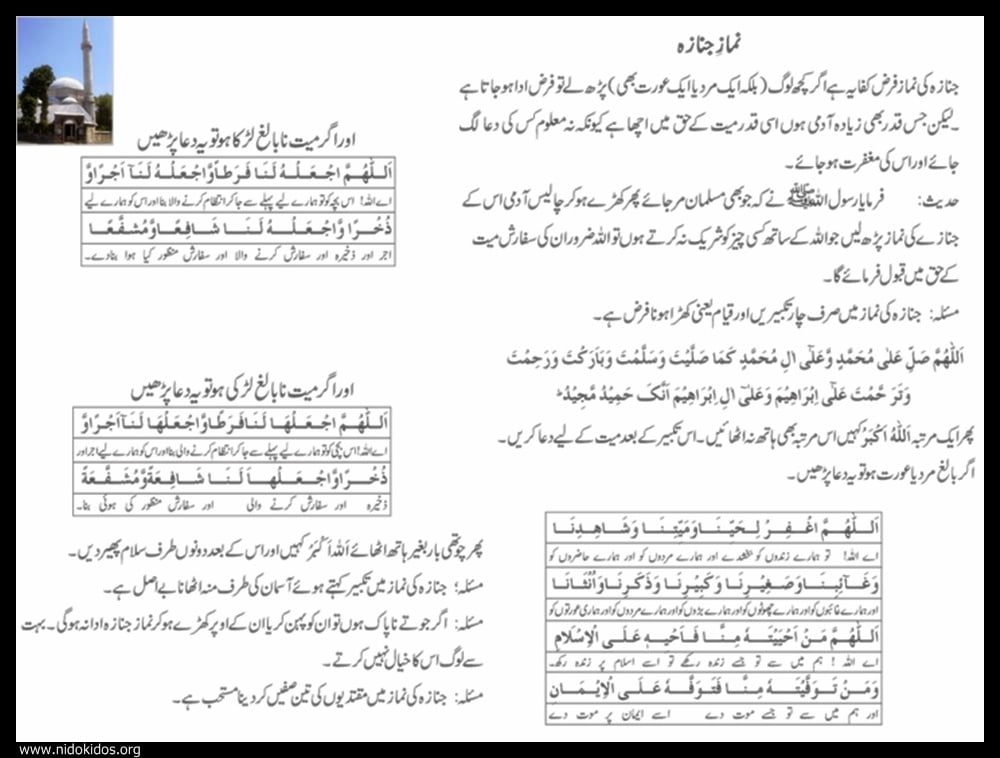 نمازِ جنازہ
جنازہ کی نماز فرض کفایہ ہے اگر کچھ لوگ (بلکہ ایک مرد یا ایک عورت بھی) پڑھ لے تو فرض ادا ہو جاتا ہے
۔لیکن جس قدر بھی زیادہ آدمی ہوں اسی قدر میت کے حق میں اچھا ہے کیونکہ نہ معلوم کس کی دعا لگ
جائے اور اس کی مغفرت ہو جائے۔
حدیث: فرمایا رسول اللہ ﷺ نے کہ جو بھی مسلمان مر جائے پھر کھڑے ہو کر چالیس آدمی اس کے
جنازے کی نماز پڑھ لیں جو اللہ کے ساتھ کسی چیز کو شریک نہ کرتے ہوں تو اللہ ضرور ان کی سفارش میت
کے حق میں قبول فرمائے گا۔
مسئلہ: جنازہ کی نماز میں صرف چار تکبیریں اور قیام یعنی کھڑا ہونا فرض ہے۔
اَللّٰهُمَّ صَلِّ عَلٰى مُحَمَّدٍ وَّعَلٰٓى اٰلِ مُحَمَّدٍ كَمَا صَلَّيْتَ وَسَلَّمْتَ وَبَارَكْتَ وَرَحِمْتَ
وَتَرَحَّمْتَ عَلٰٓى اِبْرَاهِيْمَ وَعَلٰٓى اٰلِ اِبْرَاهِيْمَ اِنَّكَ حَمِيْدٌ مَّجِيْدٌ ط
پھر ایک مرتبہ اَللّٰهُ اَكْبَرُ کہیں اس مرتبہ بھی ہاتھ نہ اٹھائیں۔ اس تکبیر کے بعد میت کے لیے دعا کریں۔
اگر بالغ مرد یا عورت ہو تو یہ دعا پڑھیں۔
اَللّٰهُمَّ اغْفِرْ لِحَيِّنَا وَمَيِّتِنَا وَشَاهِدِنَا
اے اللہ! تو ہمارے زندوں کو بخشدے اور ہمارے مردوں کو اور ہمارے حاضروں کو
وَغَآئِبِنَا وَصَغِيْرِنَا وَكَبِيْرِنَا وَذَكَرِنَا وَاُنْثَانَا
اور ہمارے غائبوں کو اور ہمارے چھوٹوں کو اور ہمارے بڑوں کو اور ہمارے مردوں کو اور ہماری عورتوں کو
اَللّٰهُمَّ مَنْ اَحْيَيْتَهٗ مِنَّا فَاَحْيِهٖ عَلَى الْاِسْلَامِ
اے اللہ! ہم میں سے تو جسے زندہ رکھے تو اسے اسلام پر زندہ رکھ۔
وَمَنْ تَوَفَّيْتَهٗ مِنَّا فَتَوَفَّهٗ عَلَى الْاِيْمَانِ
اور ہم میں سے تو جسے موت دے اسے ایمان پر موت دے
اور اگر میت نابالغ لڑکا ہو تو یہ دعا پڑھیں
اَللّٰهُمَّ اجْعَلْهُ لَنَا فَرَطًا وَّاجْعَلْهُ لَنَآ اَجْرًا وَّ
اے اللہ! اس بچہ کو تو ہمارے لیے پہلے سے جا کر انتظام کرنے والا بنا اور اس کو ہمارے لیے
ذُخْرًا وَّاجْعَلْهُ لَنَا شَافِعًا وَّمُشَفَّعًا
اجر اور ذخیرہ اور سفارش کرنے والا اور سفارش منظور کیا ہوا بنا دے۔
اور اگر میت نابالغ لڑکی ہو تو یہ دعا پڑھیں
اَللّٰهُمَّ اجْعَلْهَا لَنَا فَرَطًا وَّاجْعَلْهَا لَنَآ اَجْرًا وَّ
اے اللہ! اس بچی کو تو ہمارے لیے پہلے سے جا کر انتظام کرنے والی بنا اور اس کو ہمارے لیے اجر اور
ذُخْرًا وَّاجْعَلْهَا لَنَا شَافِعَةً وَّمُشَفَّعَةً
ذخیرہ اور سفارش کرنے والی اور سفارش منظور کی ہوئی بنا۔
پھر چوتھی بار بغیر ہاتھ اٹھائے اَللّٰهُ اَكْبَرُ کہیں اور اس کے بعد دونوں طرف سلام پھیر دیں۔
مسئلہ: جنازہ کی نماز میں تکبیر کہتے ہوئے آسمان کی طرف منہ اٹھانا بے اصل ہے۔
مسئلہ: اگر جوتے ناپاک ہوں تو ان کو پہن کر یا ان کے اوپر کھڑے ہو کر نماز جنازہ ادا نہ ہوگی۔ بہت
سے لوگ اس کا خیال نہیں کرتے۔
مسئلہ: جنازہ کی نماز میں مقتدیوں کی تین صفیں کر دینا مستحب ہے۔
www.nidokidos.org